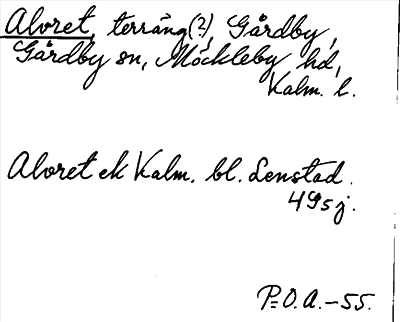 Alvret, terräng(?), Gårdby,
Gårdby sn, Möckleby hd,
Kalm. l.
Alvret ek Kalm. bl. Lenstad.
495j.
P.O.A.-55.